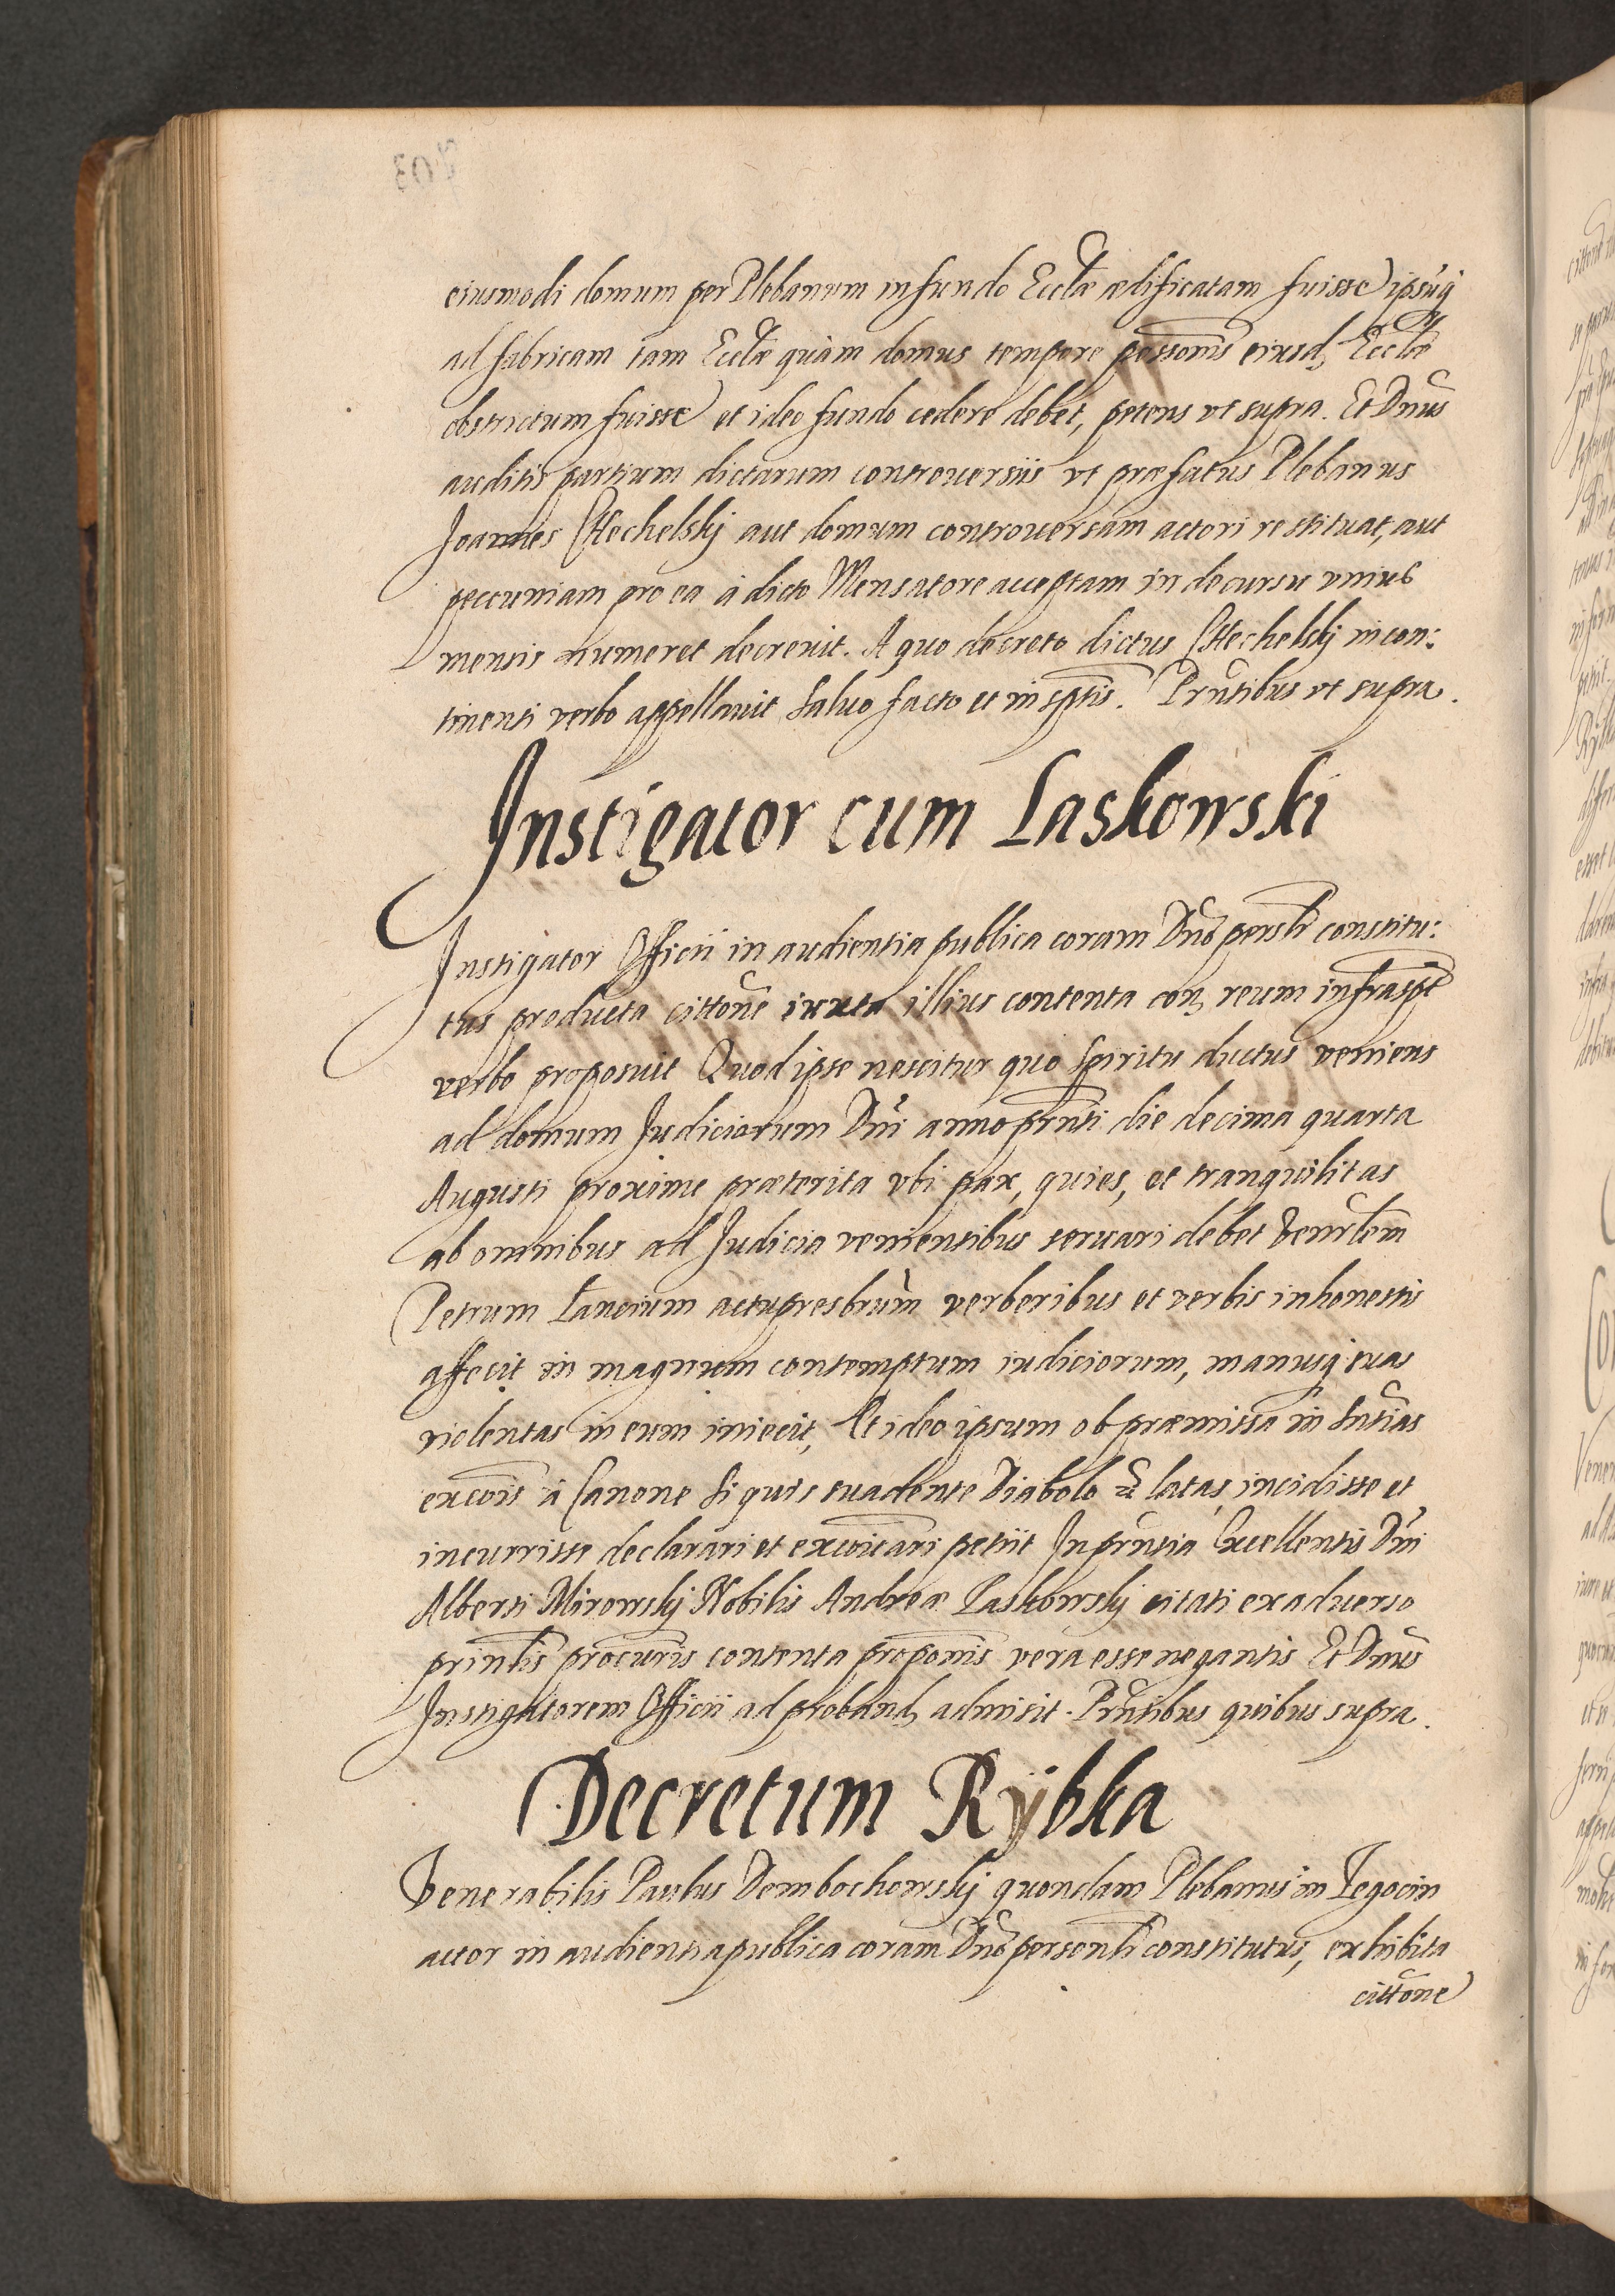 eiusmodi domum per Plebanum in fundo Ecclæ ædificatam fuisse ipsuq
ad fabricam tam Ecclæ quàm domus tempore possonis eiusd Ecclæ
obstrictum fuisse et ideo fundo cedere debet, petens vt supra. Et Dnus
auditis partium dictarum controuersiis vt præfatus Plebanus
Joannes Chechelskj aut domum controuersam actori restituat, aut
peccuniam pro ea à dicto Mensatore acceptam in decursu vnius
mensis numeret decreuit. A quo decreto dictus Chechelskj incon:
tinenti verbo appellauit saluo facto et in sptis. Prntibus vt supra.
Instigator cum Laskowski
Instigator Officii in audientia publica coram Dno persl̃r constitu:
tus producta cittone iuxta illius contenta con reum infraspt
verbo proposuit Quod ipse nescitur quo spiritu ductus veniens
ad domum Judiciorum Dni anno prnti die decima quarta
Augusti proxime præterita vbi pax, quies, et tranquilitas
ab omnibus ad Judicia venientibus seruari debet Venrlem
Petrum Lancium actu presbrum verberibus et verbis inhonestis
affecit in magnum contemptum iudiciorum, manusq suas
violentas in eum iniecit, Et ideo ipsum ob præmissa in sntias
excois à Canone Si quis suadente Diabolo &c latas incidisse et
incurrisse declarari et excoicari petiit In prntia Excellentis Dni
Alberti Mirowskj Nobilis Andreæ Laskowskj citati ex aduerso
prinlis procuris contenta propoñis vera esse negantis Et Dnus
Instigatorem Officii ad proband admisit. Prntibus quibus supra.
Decretum Rÿbka
Venerabilis Paulus Dembochowskj quondam Plebanus in Tegocin
actor in audientia publica coram Dno personlr constitutus, exhibita
cittone